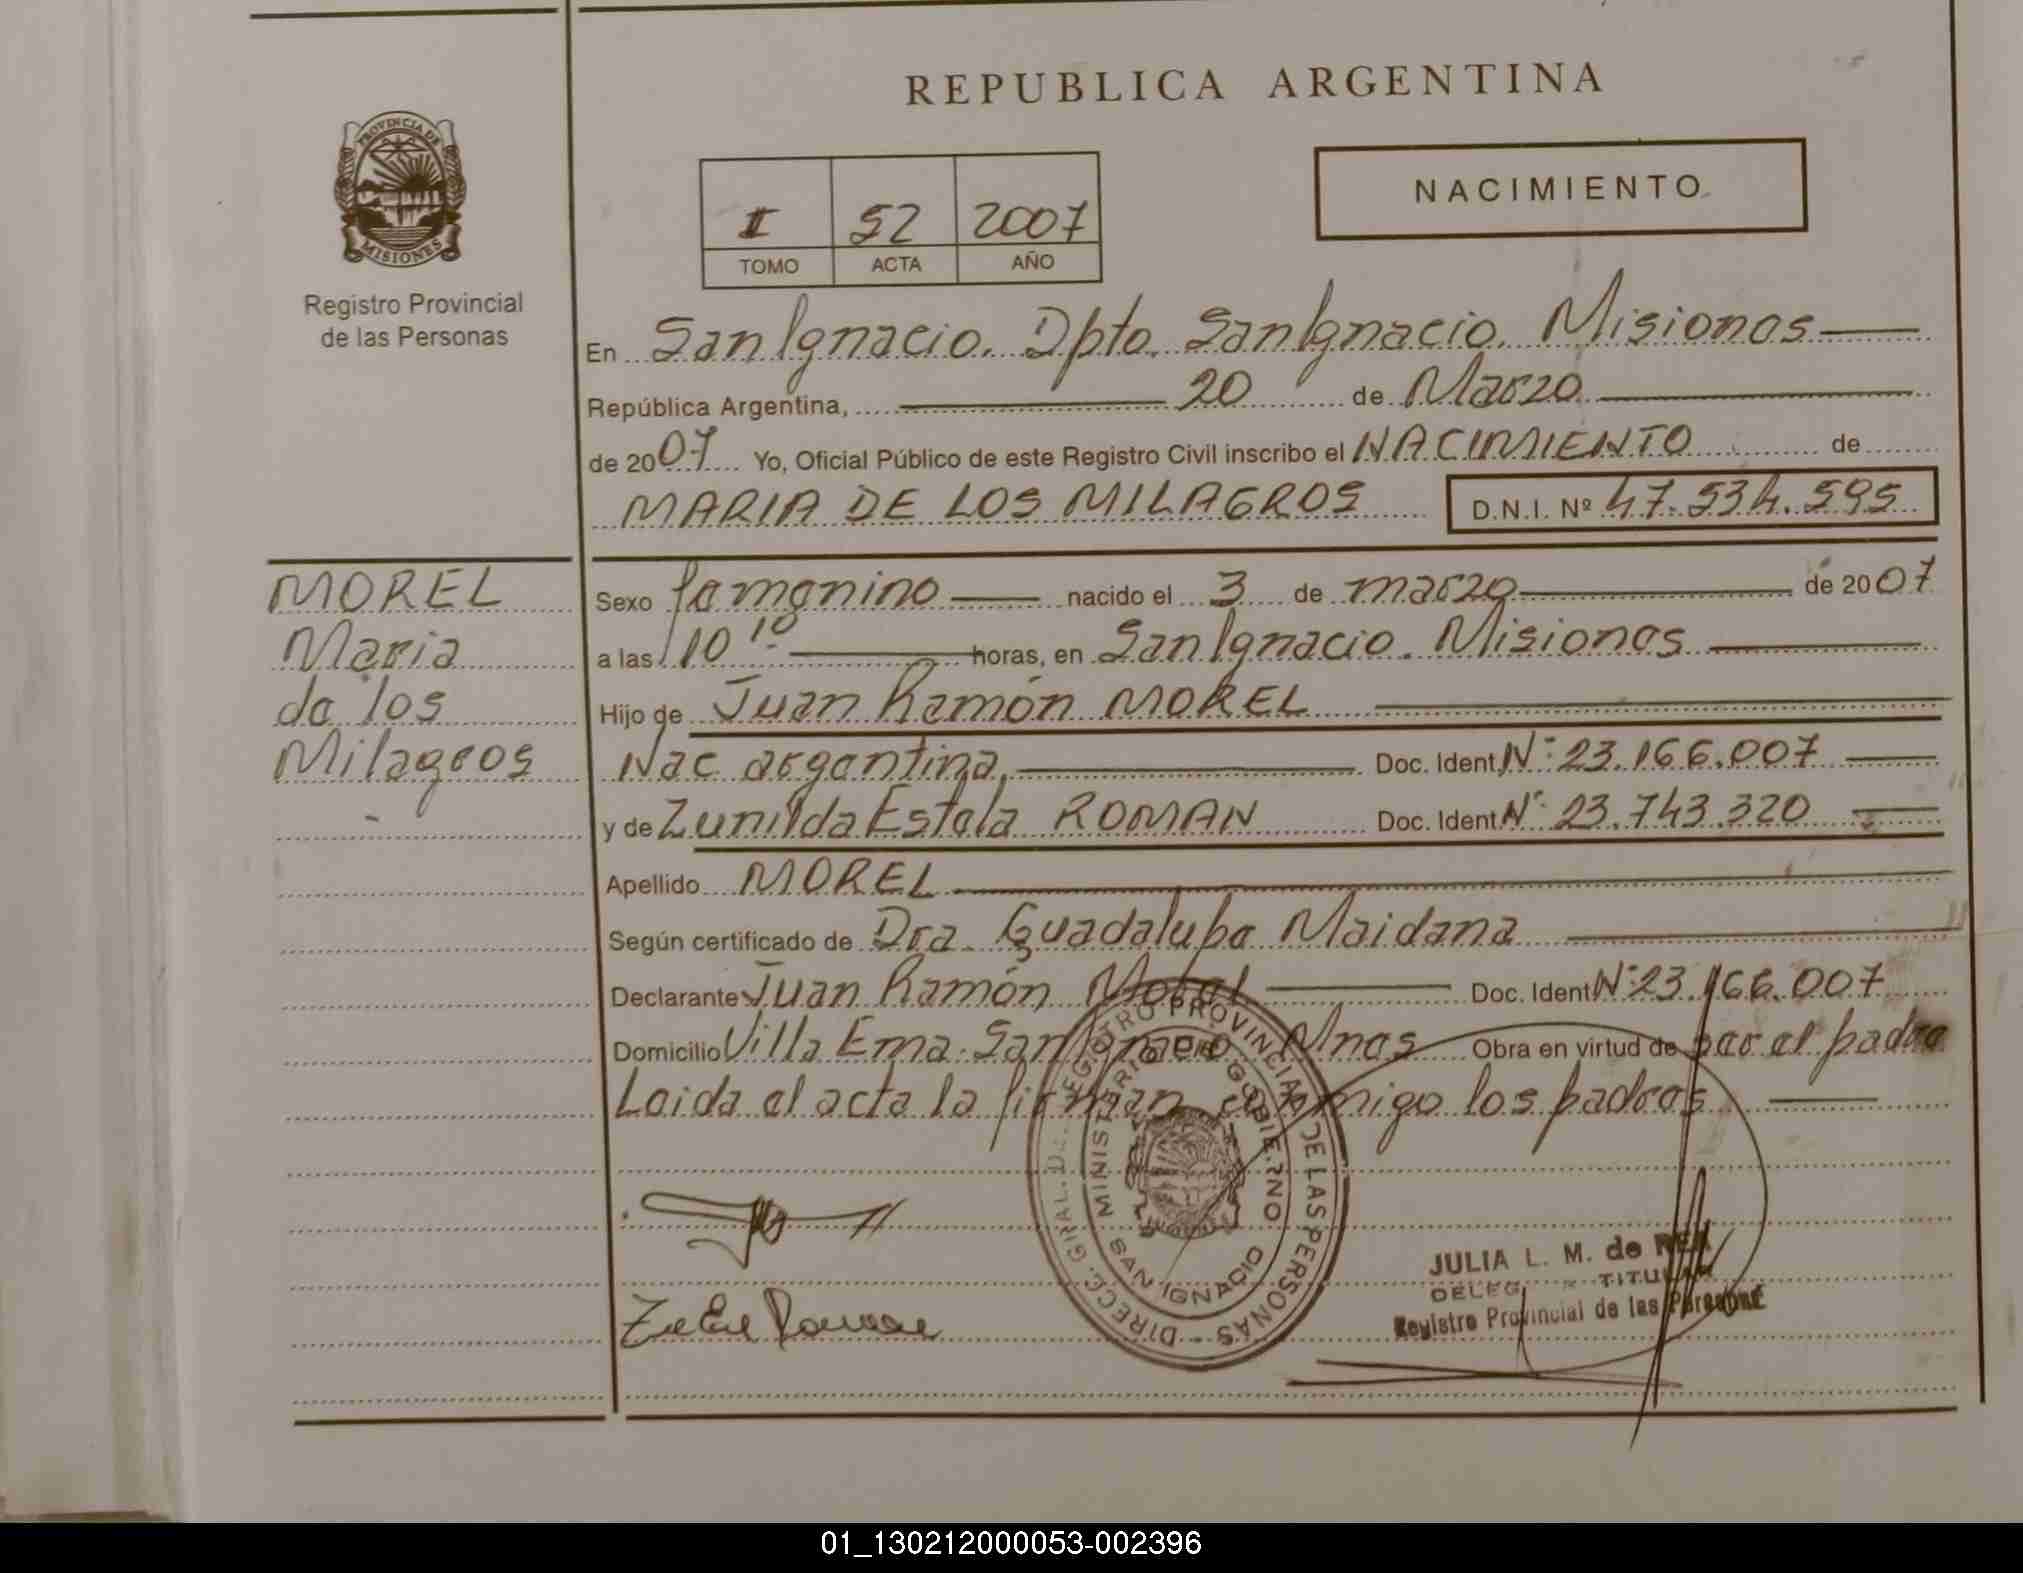 REPUBLICA ARGENTINA
PROVINCIA DE
MISIONES
Registro Provincial
de las Personas
NACIMIENTO
I 52 2007
TOMO ACTA AÑO
En San Ignacio. Dpto. San Ignacio. Misiones
República Argentina, 20 de Marzo
de 2007 Yo, Oficial Público de este Registro Civil inscribo el NACIMIENTO de
MARIA DE LOS MILAGROS D.N.I. Nº 47.534.595
MOREL
Maria
de los
Milagros
Sexo femenino nacido el 3 de marzo de 2007
a las 10 10 horas, en San Ignacio. Misiones
Hijo de Juan Ramón MOREL
Nac argentina, Doc. Ident Nº 23.166.007
y de Zunilda Estela ROMAN Doc. Ident Nº 23.743.320
Apellido MOREL
Según certificado de Dra. Guadalupe Maidana
Declarante Juan Ramón Morel Doc. Ident Nº 23.166.007
Domicilio Villa Ema. San Ignacio. Mnes Obra en virtud de ser el padre
Leida el acta la firman conmigo los padres
DIRECC. GRAL. DE REGISTRO PROVINCIAL DE LAS PERSONAS
MINISTERIO DE GOBIERNO
SAN IGNACIO
JULIA L. M. de REA
TITULAR
Registro Provincial de las Personas
01_130212000053-002396